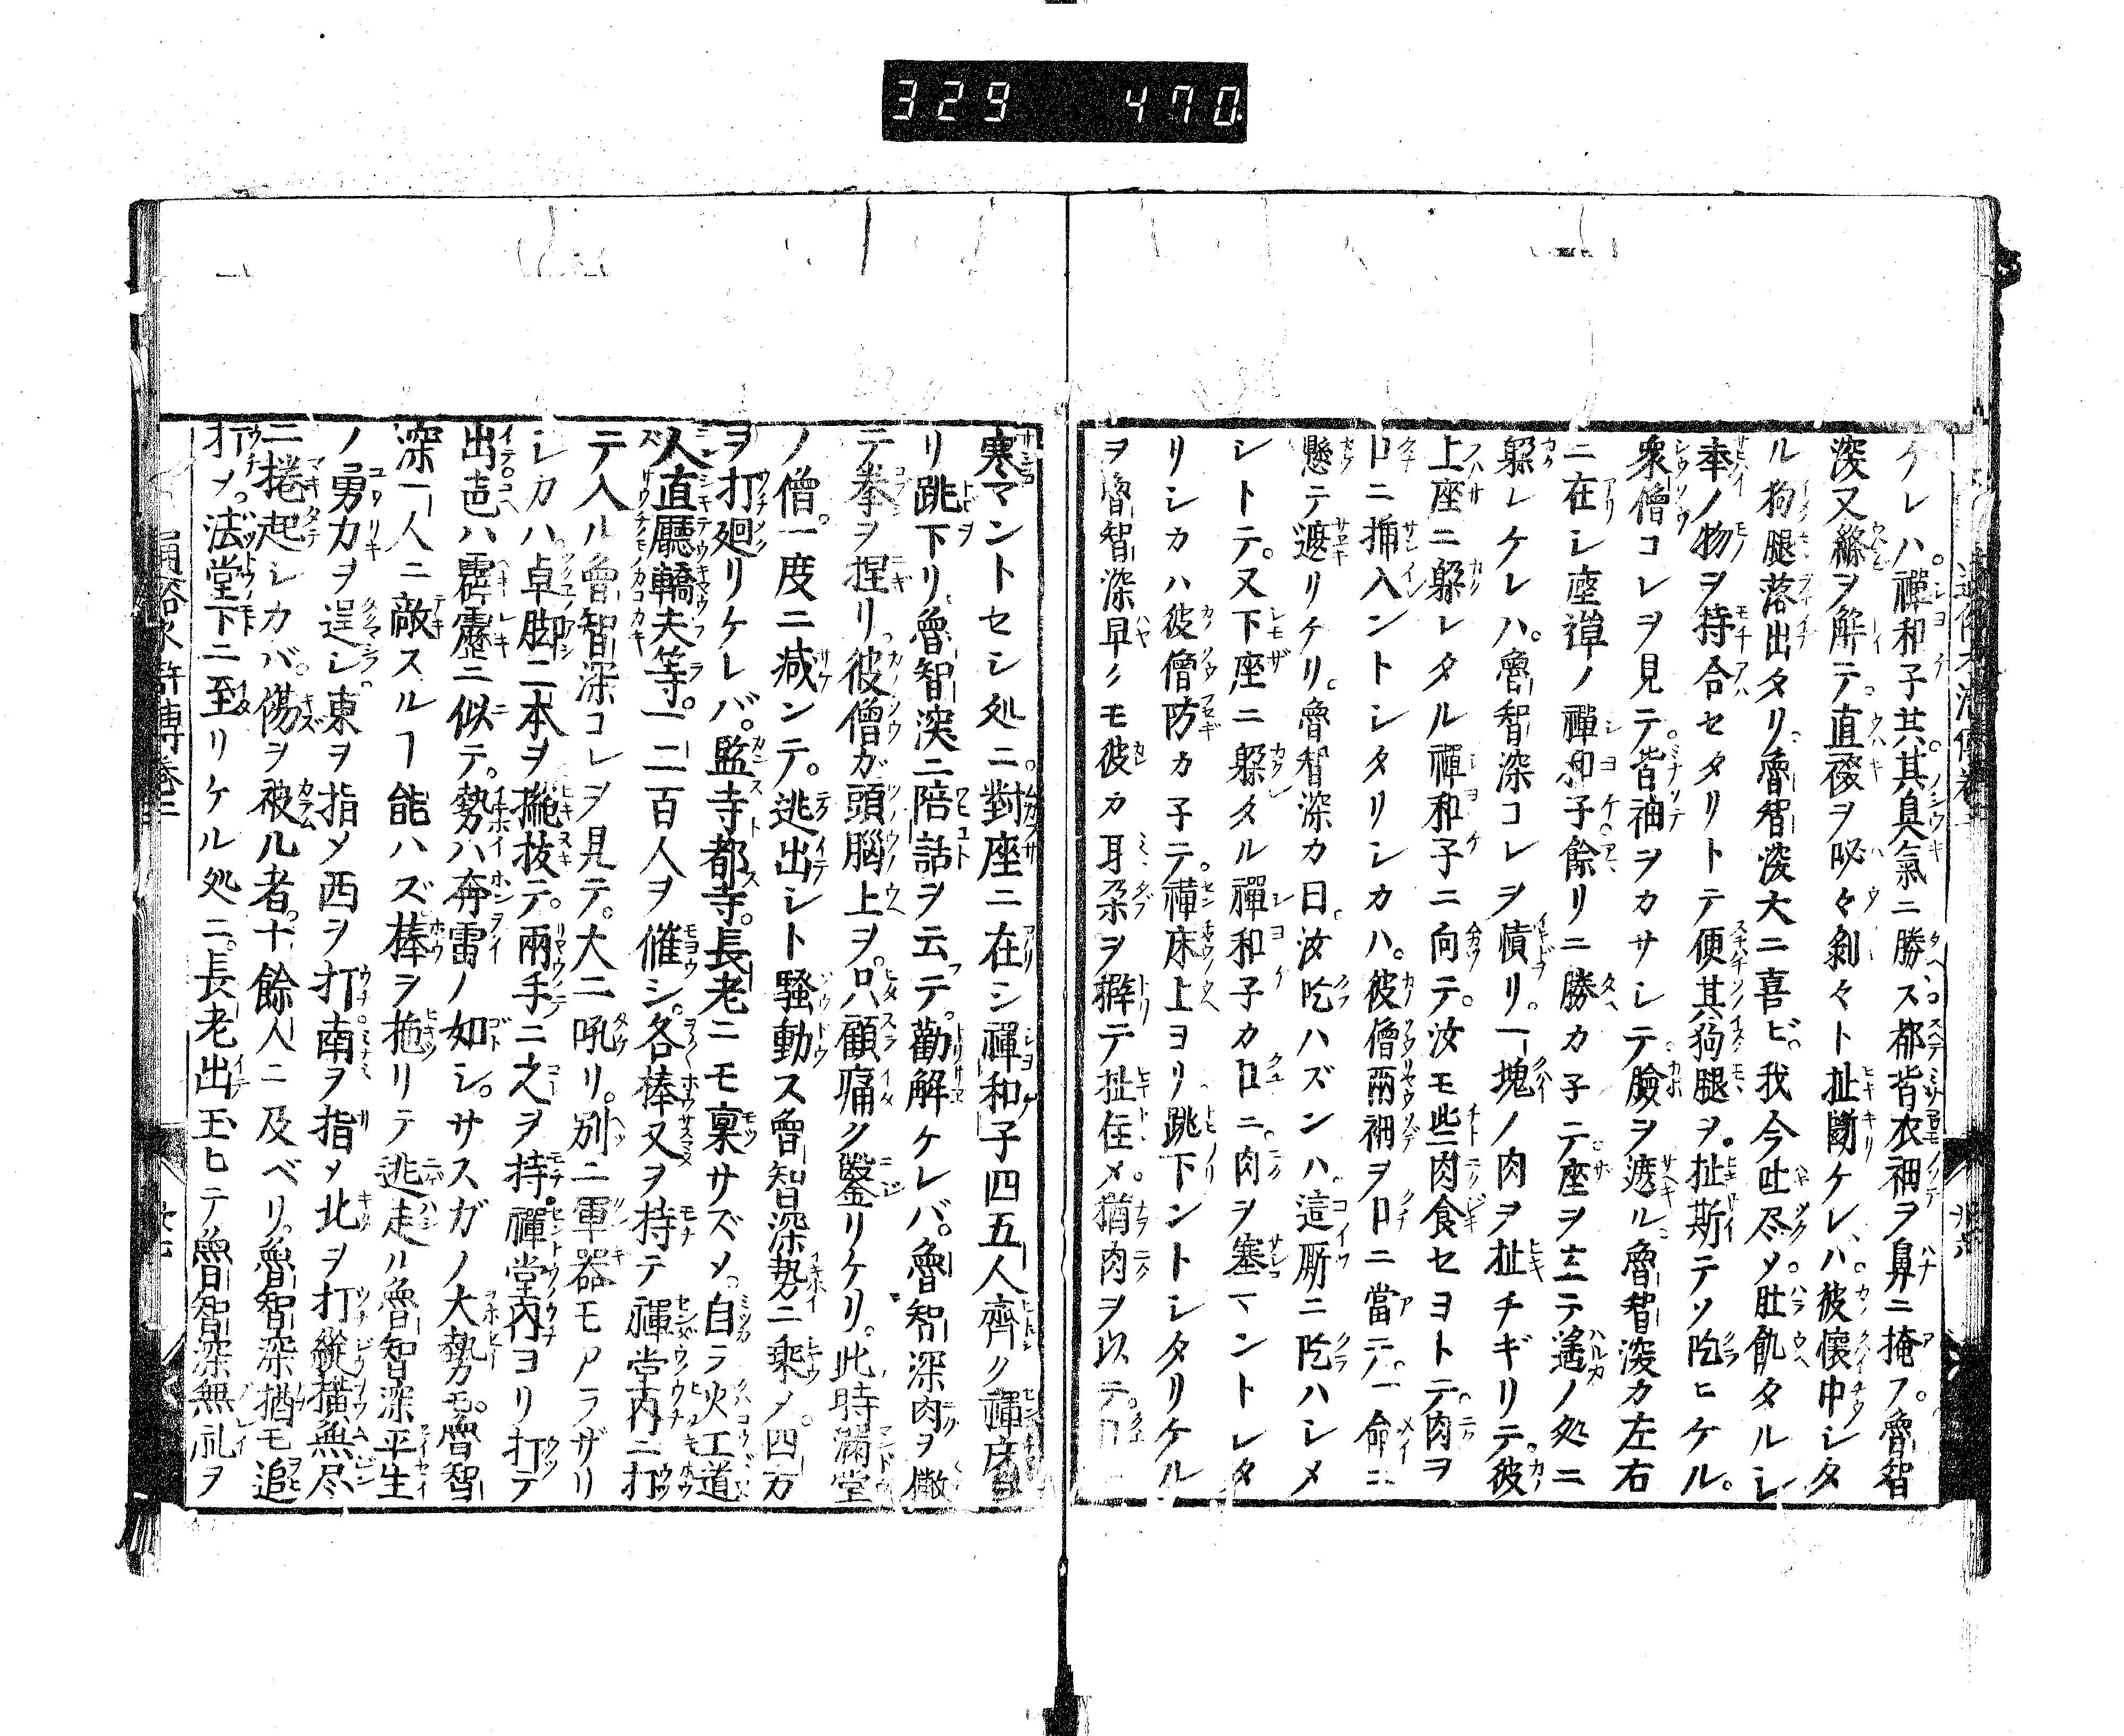 329 470
ケレハ。禪和子其其臭氣ニ勝ス都皆衣袖ヲ鼻ニ掩フ。魯智
深又縧ヲ解テ。直裰ヲ咇々剝々ト扯斷ケレハ。彼懷中シタ
ル狗腿落出タリ。魯智深大ニ喜ビ。我今吐尽メ。肚飢タルレ
奉ノ物ヲ持合セタリトテ便其狗腿ヲ。扯斯テソ吃ヒケル。
衆僧コレヲ見テ。皆袖ヲカサレテ臉ヲ遮ル。魯智深カ左右
ニ在シ座禪ノ禪和子餘リニ勝カ子テ。座ヲ立テ遙ノ処ニ
躱レケレハ。魯智深コレヲ憤リ。一塊ノ肉ヲ扯チギリテ。彼
上座ニ躱レタル禪和子ニ向テ。汝モ些肉食セヨトテ。肉ヲ
口ニ挿入ントシタリシカハ。彼僧兩袖ヲ口ニ當テ。一命ニ
懸テ遮リケリ。魯智深カ曰。汝吃ハズンハ。這厮ニ吃ハシメ
ントテ。又下座ニ躱タル禪和子カ口ニ。肉ヲ塞マントレタ
リシカハ彼僧防カ子テ。禪床上ヨリ跳下ントシタリケル
ヲ魯智深早クモ彼カ耳朶ヲ擗テ扯住メ。猶肉ヲ以テ。口
塞マントセシ処ニ。對座ニ在シ禪和子四五人齊ク禪床
リ跳下リ。魯智深ニ陪話ヲ云テ。勸解ケレバ。魯智深肉ヲ撒
テ拳ヲ捏リ。彼僧ガ頭腦上ヲ。只顧痛ク鑿リケリ。此時滿堂
ノ僧一度ニ減ンテ。逃出レト騷動ス魯智深勢ニ乘メ。四方
ヲ打廻リケレバ。監寺都寺。長老ニモ稟サズメ。自ラ火工道
人直廳轎夫等。一二百人ヲ催シ。各棒叉ヲ持テ禪堂内ニ打
テ入ル魯智深コレヲ見テ。大ニ吼リ。別ニ軍器モアラザリ
シカハ。卓脚二本ヲ撧抜テ。兩手ニ之ヲ持。禪堂内ヨリ打テ
出。音ハ霹靂ニ似テ。勢ハ奔雷ノ如シ。サスガノ大勢モ。魯智
深一人ニ敵スルヿ能ハズ棒ヲ拖リテ逃走ル魯智深平生
ノ勇力ヲ逞レ。東ヲ指メ西ヲ打。南ヲ指メ北ヲ打縱橫無尽
ニ捲起レカバ。傷ヲ被ル者。十餘人ニ及ベリ。魯智深猶モ追
打メ。法堂下ニ至リケル処ニ。長老出玉ヒテ魯智深無礼ヲ
通俗水滸傳卷二